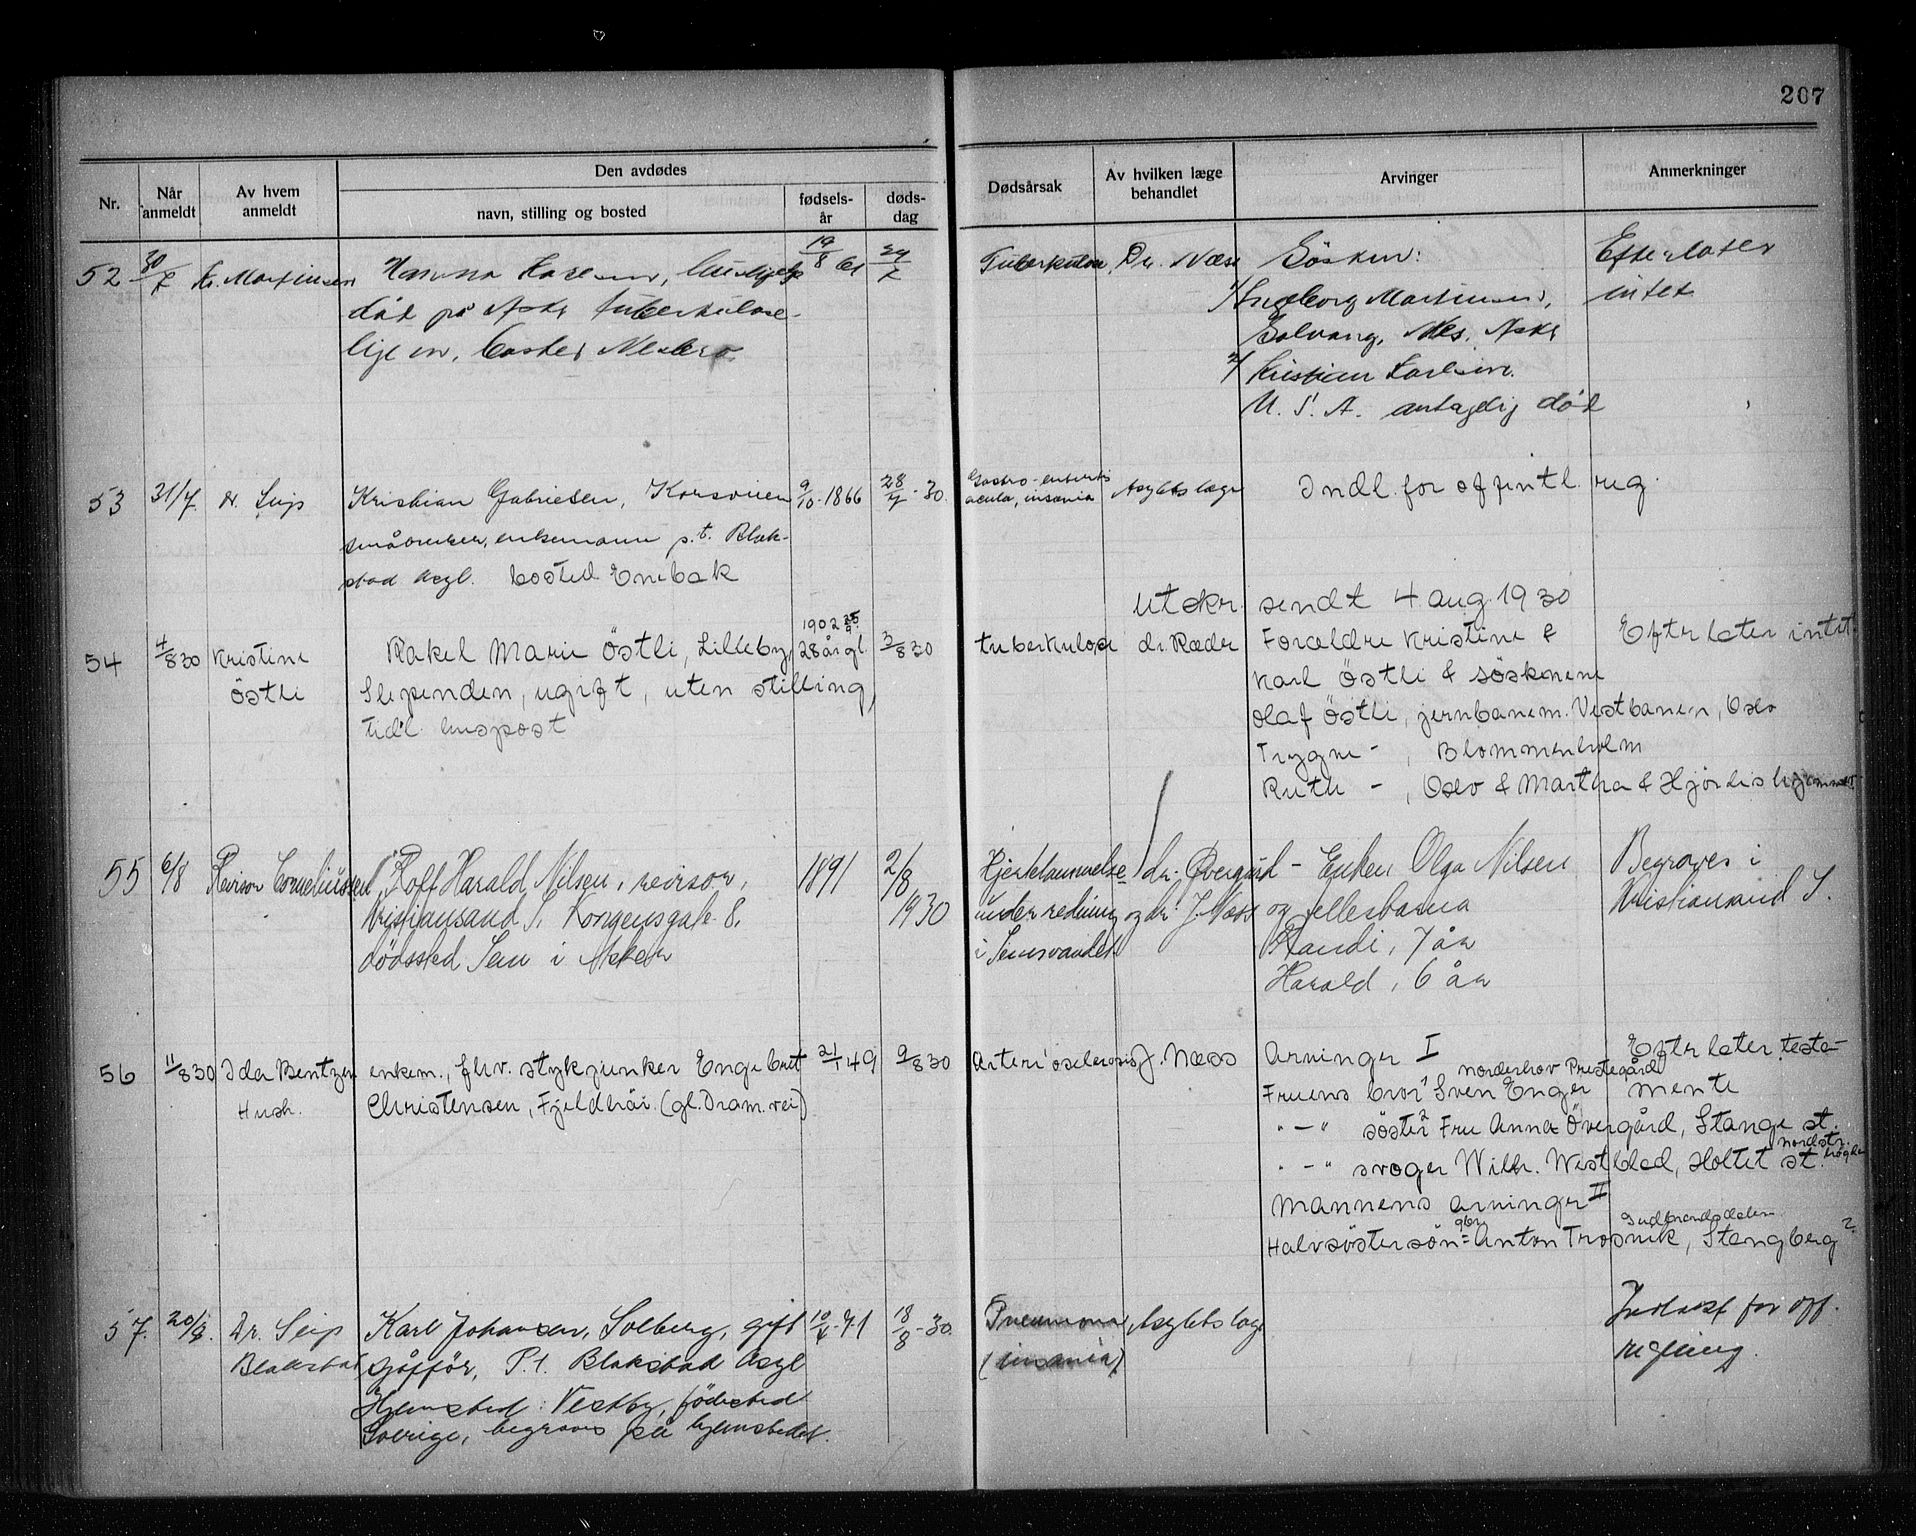 207
Nr.
Når anmeldt
Av hvem anmeldt
Den avdødes
navn, stilling og bosted
fødsels-år
døds-dag
Dødsårsak
Av hvilken læge behandlet
Arvinger
Anmerkninger
52 30/7 Martinsen
død på Asker tuberkulose-
19/8 61 29/7
Tuberkulose Dr. Næss
Søsken:
1/ Ingeborg Martinsen,
Solvang, Nes, Asker
2/ Kristian Karlsen.
U. S. A. antagelig död
Efterlater
intet
53 31/7 dr. Seip
Kristian Gabrielsen, Korsveien
småbruker, enkemann p.t. Blak-
stad Asyl. bosted Enebak
9/10-1866 28/7-30.
Gastro-enterits
acuta, insania
Asylets læge
Indl. for offentl. reg.
54 4/8 30 Kristine
Östli
Rakel Marie Östli, Lilleby,
Slependen, ugift, uten stilling,
tidl. huspost
1902 25/9
28 år gl.
3/8 30
tuberkulose dr. Ræder
utskr. sendt 4 aug. 1930
Forældre Kristine &
Karl Östli & söskenene
Olaf Östli, jernbanem. Vestbanen, Oslo
Trygve - , Blommenholm
Ruth - , Oslo & Martha & Hjördis hjemmev.
Efterlater intet.
55 6/8 Revisor Corneliussen
Rolf Harald Nilsen, revisor,
Kristiansand S, Kongensgate 8.
dödssted Sem i Asker
1891 2/8
1930
Hjertelammelse
under redning
i Semsvandet
dr. Övergård
og dr. J. Næss
- Enken Olga Nilsen
og fellesbarna
Randi, 7 år
Harald, 6 år
Begraves i
Kristiansand S.
56 11/8 30 Ida Bentzen
Hush.
enkem., fhv. stykjunker Engebret
Christensen, Fjeldhöi. (gl. Dram. vei)
21/1 49 9/8 30
Arteriosclerosis J. Næss
Arvinger I
Norderhov Prestegård
Fruens bror 1 Sven Enger
" - " söster 2 Fru Anna Övergård, Stange st.
" - " svoger Wilh. Westblad, Holtet st. nordstr. högda
Mannens arvinger II
Halvsöstersön = Anton Trosvik, Stengberg ?
Gudbrandsdalen
Efterlater testa-
mente
57. 20/8. Dr. Seip
Blakstad
Karl Johansen, Solberg, gift
sjåfför, P.t. Blakstad Asyl
Hjemsted: Vestby, födested
Sverige, begraves på hjemstedet.
18/8-30.
Pneumonia,
(insania)
Asylets læge
Indlagt for off.
regning.